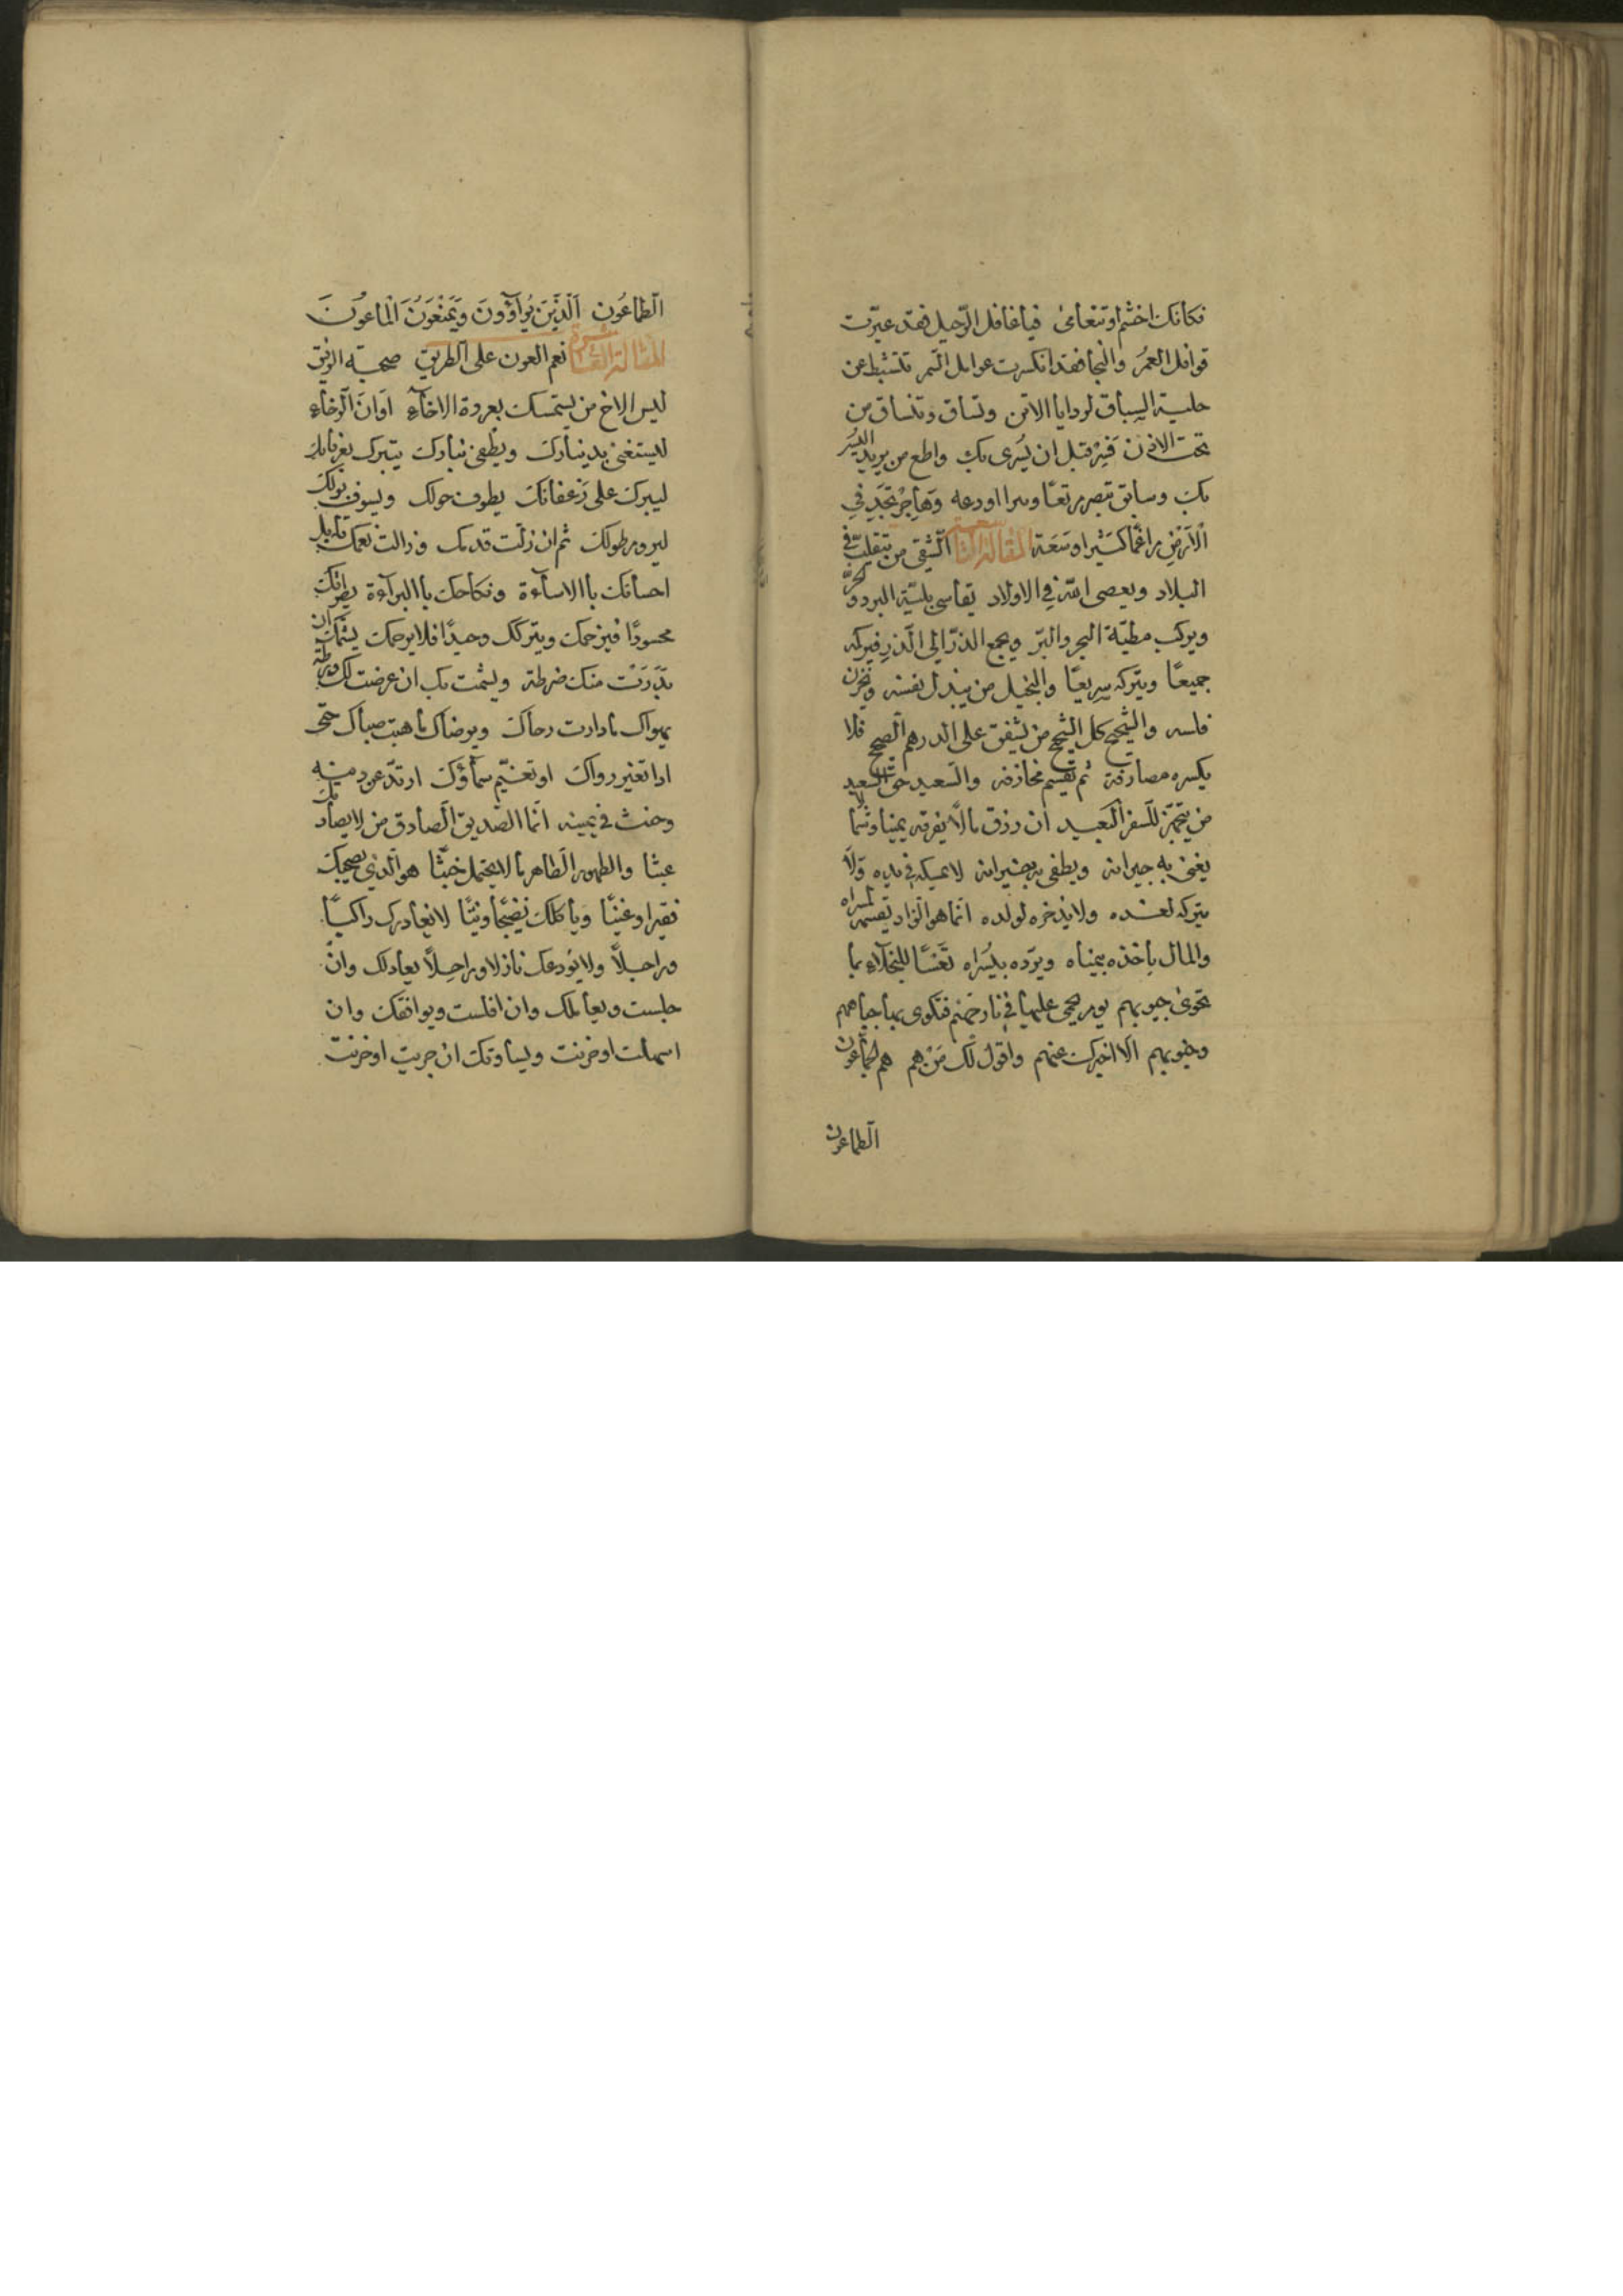 فكانك اخشم او تتعامى فيا غافل الرّحيل فقد عبرت
قوافل العمُر والنجا فقد انكسرت عوامل السّمر تتثبط عن
حلبة السباق لوداياالاتن وتساق وتنساق من
تحت الاذن فَسِرْ قبل ان يُسرى بك واطع من يريد اليُسْر
بك وسابق تبصر مرتعًا ومراا اودعه وَهَاجِرْ تَجِدْ فِي
الْاَرْضِ مراغمًا كَثيرا وسَعَة المقالة التاسعة الشّقى من يتقلب فى
البلاد ويعصى الله فى الاولاد يقاسى بليّة البرد والحرّ
ويركب مطيّة البحر والبرّ ويجمع الذرّ الى الذر فيركمه
جميعًا ويتركه سريعًا والبخيل من يبذل نفسه ويخزن
فلسه والشحيح كل الشحيح من يشفق على الدرهم الصحيح فلا
يكسره مصادفة ثم يقتسم مخازفه والسّعيد حقّ السعيد
من يتجهّز للسّفر البعيد ان رزق مالًا يفرقه يمينا وشمالا
يغنى به جيرانه ويطفى به نيرانه لا يمسكه فى يده ولَا
يتركه لغده ولا يذخره لولده انّما هو الزاد يقسمه لمسراه
والمال ياخذه بيمناه ويردّه بيُسراه تَعْسًا للبخلآءِ بما
تحوى جيوبهم يوم يحمى عليها فى نار جهنم فتكوى بها جباههم
وجنوبهم اَلَا اخبرك عنهم واقول لك مَنْ هم هم الجمّاعون
الطماعون
الطماعُون اَلَّذِينَ يُرَآؤُونَ وَيَمْنَعُونَ الْمَاعُونَ
المقالة العاشرة نعم العون على الطريق صحبة الرفيق
ليس الاخ من يستمسك بعروة الاخآءِ اَوَانَ الرخآءِ
ليستغنى بدينارك ويطفى بنارك يتبرك بعرفانك
ليبرك على زعفانك يطوف حولك ويسوف بولك
ليروم طولك ثم ان زلت قدمك وزالت نعمك قابل
احسانك باالاسآءة ونكاحك باالبراءة يصرانك
محسودًا فيزحمك ويتركك وحيدًا فلا يرحمك يشمتك ان
بَدَرَتْ منك ضرطة ويشمت بك ان عرضت لك ورطة
يهواك ما دارت رحاك ويرضاك ما هبت صباك حتى
اذا تغير رواك او تغيّم سمآؤك ارتدّ عن دينه
وحنث فى يمينه انّما الصّديق الصّادق من لا يصادقك
عبثا والطهور الطاهر ما لا يحتمل خبثًا هو الّذى يصحبك
فقيرا وغنيًّا وياكلك نضيجًا ونيًّا لا يغادرك راكبًا
وراجلًا ولا يودعك نازلا وراحلًا يعادلك وان
جلست ويعاملك وان افلست ويوافقك وان
اسهلت او حزنت ويساوقك ان جريت او حزنت